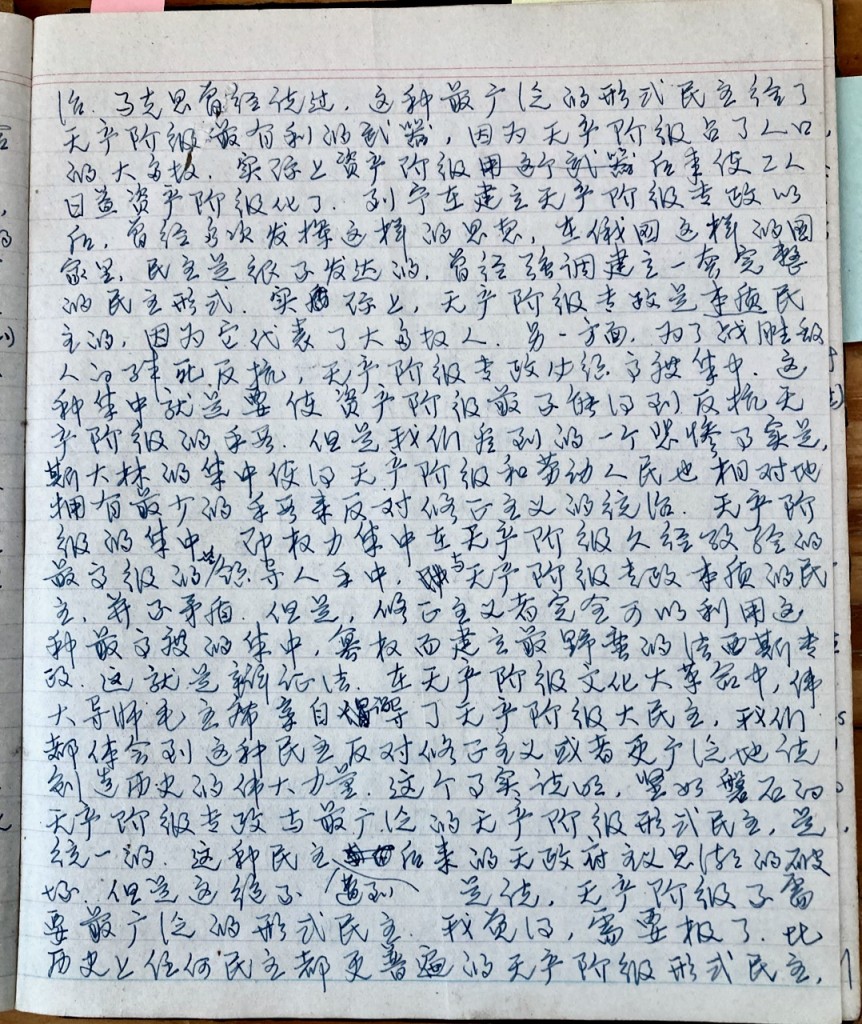 治. 马克思曾经说过, 这种最广泛的形式民主给了
无产阶级最有利的武器, 因为无产阶级占了人口
的大多数. 实际上资产阶级用这个武器后来使工人
日益资产阶级化了. 列宁在建立无产阶级专政以
后, 曾经多次发挥这样的思想, 在俄国这样的国
家里, 民主是很不发达的, 曾经强调建立一套完整
的民主形式. 实际上, 无产阶级专政是本质民
主的, 因为它代表了大多数人. 另一方面, 为了战胜敌
人的拼死反抗, 无产阶级专政必须高度集中. 这
种集中就是要使资产阶级最不能得到反抗无
产阶级的手段. 但是我们看到的一个悲惨事实是,
斯大林的集中使得无产阶级和劳动人民也相对地
拥有最少的手段来反对修正主义的统治. 无产阶
级的集中, 即权力集中在无产阶级久经考验的
最高级的领导人手中, 与无产阶级专政本质的民
主, 并不矛盾. 但是, 修正主义者完全可以利用这
种最高度的集中, 篡权而建立最野蛮的法西斯专
政. 这就是辩证法. 在无产阶级文化大革命中, 伟
大导师毛主席亲自倡导了无产阶级大民主, 我们
都体会到这种民主反对修正主义或者更广泛地说
创造历史的伟大力量. 这个事实说明, 坚如磐石的
无产阶级专政与最广泛的无产阶级形式民主, 是
统一的. 这种民主遭到后来的无政府主义思潮的破
坏. 但是这绝不是说, 无产阶级不需
要最广泛的形式民主. 我觉得, 需要极了. 比
历史上任何民主都更普遍的无产阶级形式民主,